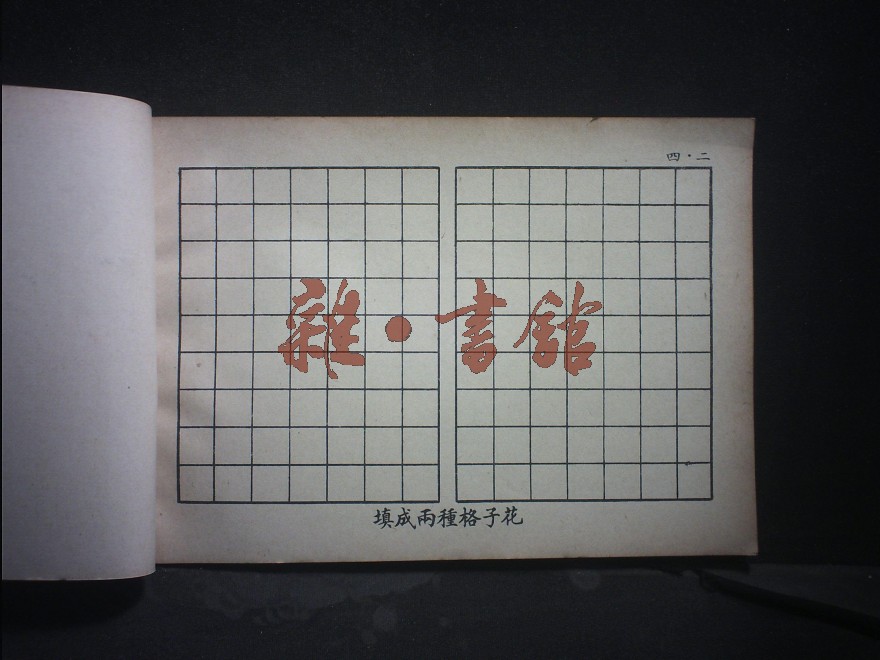 四·二
雜·書館
填成兩種格子花